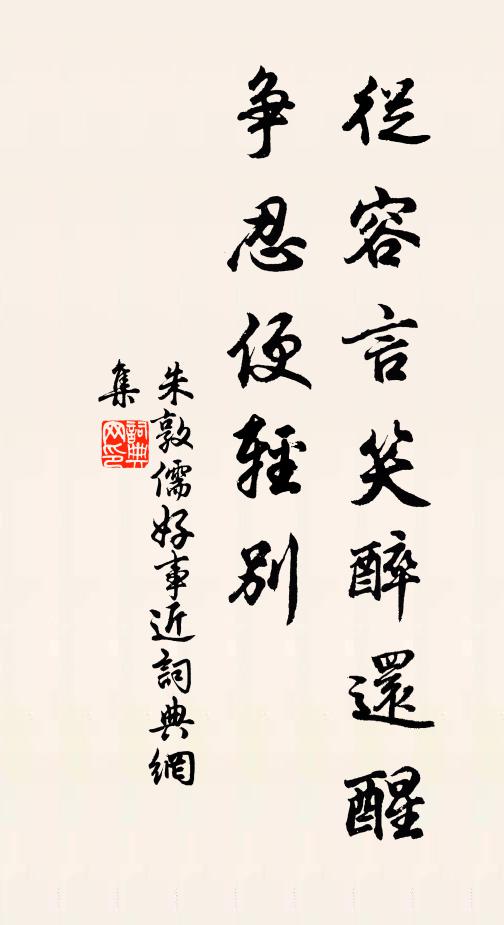 從容言笑醉還醒
争忍便輕別
朱敦儒好事近詞典網
集
詞典
网印